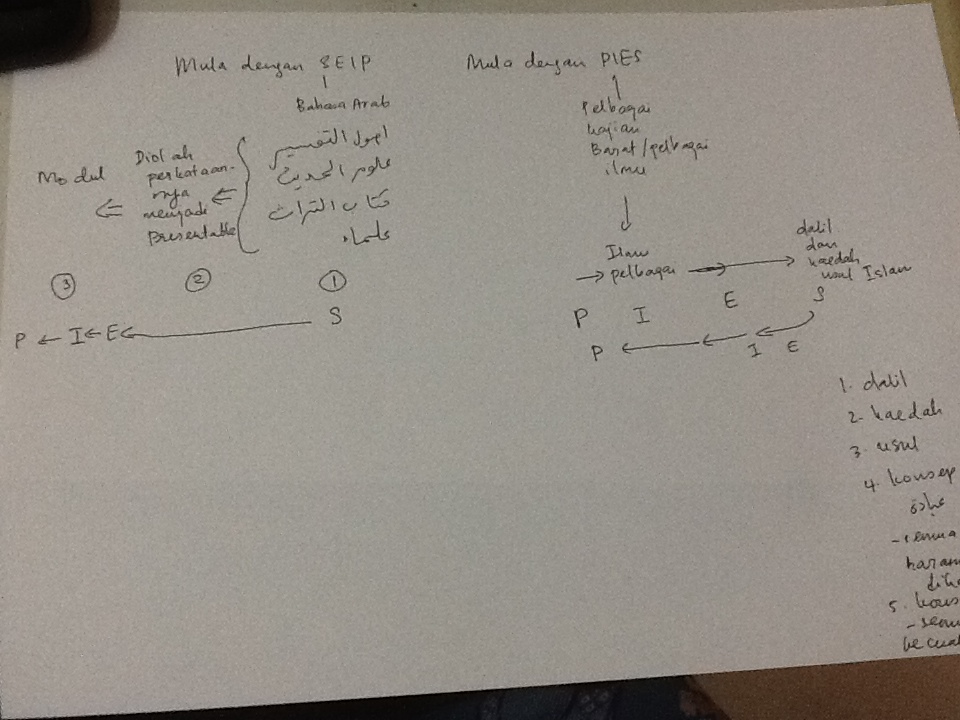 Mula dengan SEIP
Bahasa Arab
اصول التفسير
علوم الحديث
كتاب التراث
علماء
Diolah
perkataan-
nya
menjadi
presentable
Modul
3
2
1
P ← I ← E ← S
Mula dengan PIES
Pelbagai
kajian
Barat/pelbagai
ilmu
Ilmu
→ pelbagai → →
dalil
dan
kaedah
usul Islam
P I E S
P ← ← I ← E
1. dalil
2. kaedah
3. usul
4. konsep
عبادة
- semua
haram
5.